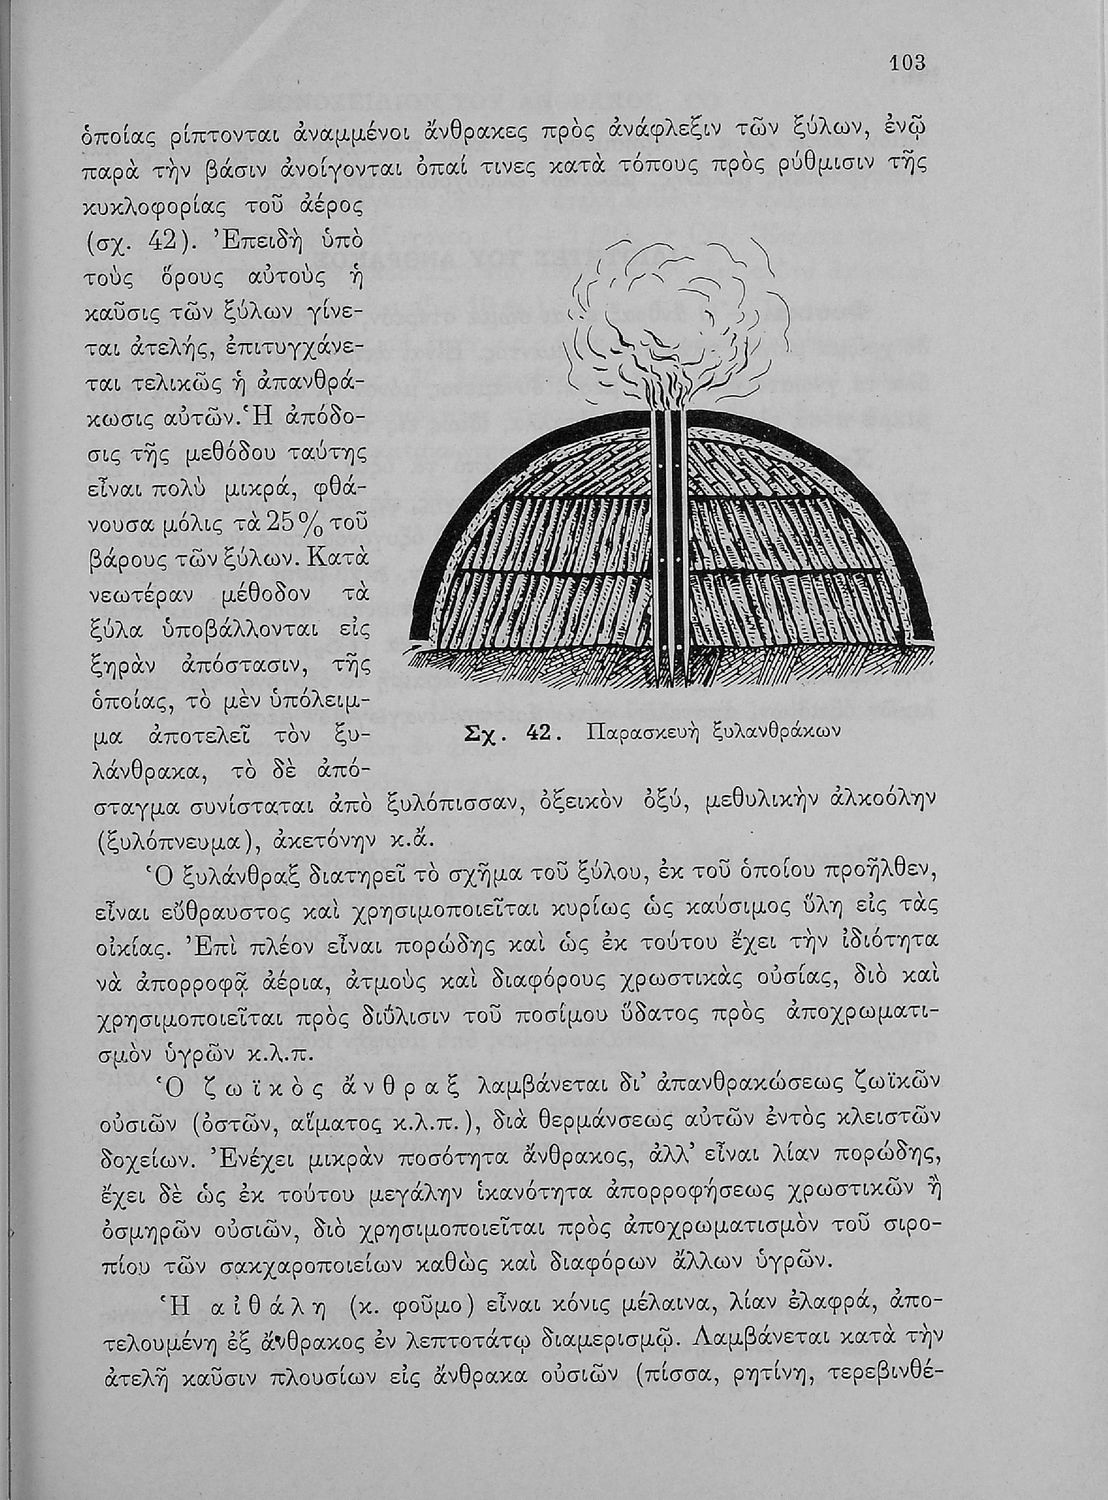 103
ὁποίας ρίπτονται ἀναμμένοι ἄνθρακες πρὸς ἀνάφλεξιν τῶν ξύλων, ἐνῷ
παρὰ τὴν βάσιν ἀνοίγονται ὀπαί τινες κατὰ τόπους πρὸς ρύθμισιν τῆς
κυκλοφορίας τοῦ ἀέρος
(σχ. 42). Ἐπειδὴ ὑπὸ
τοὺς ὅρους αὐτοὺς ἡ
καῦσις τῶν ξύλων γίνε-
ται ἀτελής, ἐπιτυγχάνε-
ται τελικῶς ἡ ἀπανθρά-
κωσις αὐτῶν. Ἡ ἀπόδο-
σις τῆς μεθόδου ταύτης
εἶναι πολὺ μικρά, φθά-
νουσα μόλις τὰ 25% τοῦ
βάρους τῶν ξύλων. Κατὰ
νεωτέραν μέθοδον τὰ
ξύλα ὑποβάλλονται εἰς
ξηρὰν ἀπόστασιν, τῆς
ὁποίας, τὸ μὲν ὑπόλειμ-
μα ἀποτελεῖ τὸν ξυ-
λάνθρακα, τὸ δὲ ἀπό-
σταγμα συνίσταται ἀπὸ ξυλόπισσαν, ὀξεικὸν ὀξύ, μεθυλικὴν ἀλκοόλην
(ξυλόπνευμα), ἀκετόνην κ.ἄ.
Σχ. 42. Παρασκευὴ ξυλανθράκων
Ὁ ξυλάνθραξ διατηρεῖ τὸ σχῆμα τοῦ ξύλου, ἐκ τοῦ ὁποίου προῆλθεν,
εἶναι εὔθραυστος καὶ χρησιμοποιεῖται κυρίως ὡς καύσιμος ὕλη εἰς τὰς
οἰκίας. Ἐπὶ πλέον εἶναι πορώδης καὶ ὡς ἐκ τούτου ἔχει τὴν ἰδιότητα
νὰ ἀπορροφᾷ ἀέρια, ἀτμοὺς καὶ διαφόρους χρωστικὰς οὐσίας, διὸ καὶ
χρησιμοποιεῖται πρὸς διΰλισιν τοῦ ποσίμου ὕδατος πρὸς ἀποχρωματι-
σμὸν ὑγρῶν κ.λ.π.
Ὁ ζωϊκὸς ἄνθραξ λαμβάνεται δι᾿ ἀπανθρακώσεως ζωϊκῶν
οὐσιῶν (ὀστῶν, αἵματος κ.λ.π.), διὰ θερμάνσεως αὐτῶν ἐντὸς κλειστῶν
δοχείων. Ἐνέχει μικρὰν ποσότητα ἄνθρακος, ἀλλ᾿ εἶναι λίαν πορώδης,
ἔχει δὲ ὡς ἐκ τούτου μεγάλην ἱκανότητα ἀπορροφήσεως χρωστικῶν ἢ
ὀσμηρῶν οὐσιῶν, διὸ χρησιμοποιεῖται πρὸς ἀποχρωματισμὸν τοῦ σιρο-
πίου τῶν σακχαροποιείων καθὼς καὶ διαφόρων ἄλλων ὑγρῶν.
Ἡ αἰθάλη (κ. φοῦμο) εἶναι κόνις μέλαινα, λίαν ἐλαφρά, ἀπο-
τελουμένη ἐξ ἄνθρακος ἐν λεπτοτάτῳ διαμερισμῷ. Λαμβάνεται κατὰ τὴν
ἀτελῆ καῦσιν πλουσίων εἰς ἄνθρακα οὐσιῶν (πίσσα, ρητίνη, τερεβινθέ-